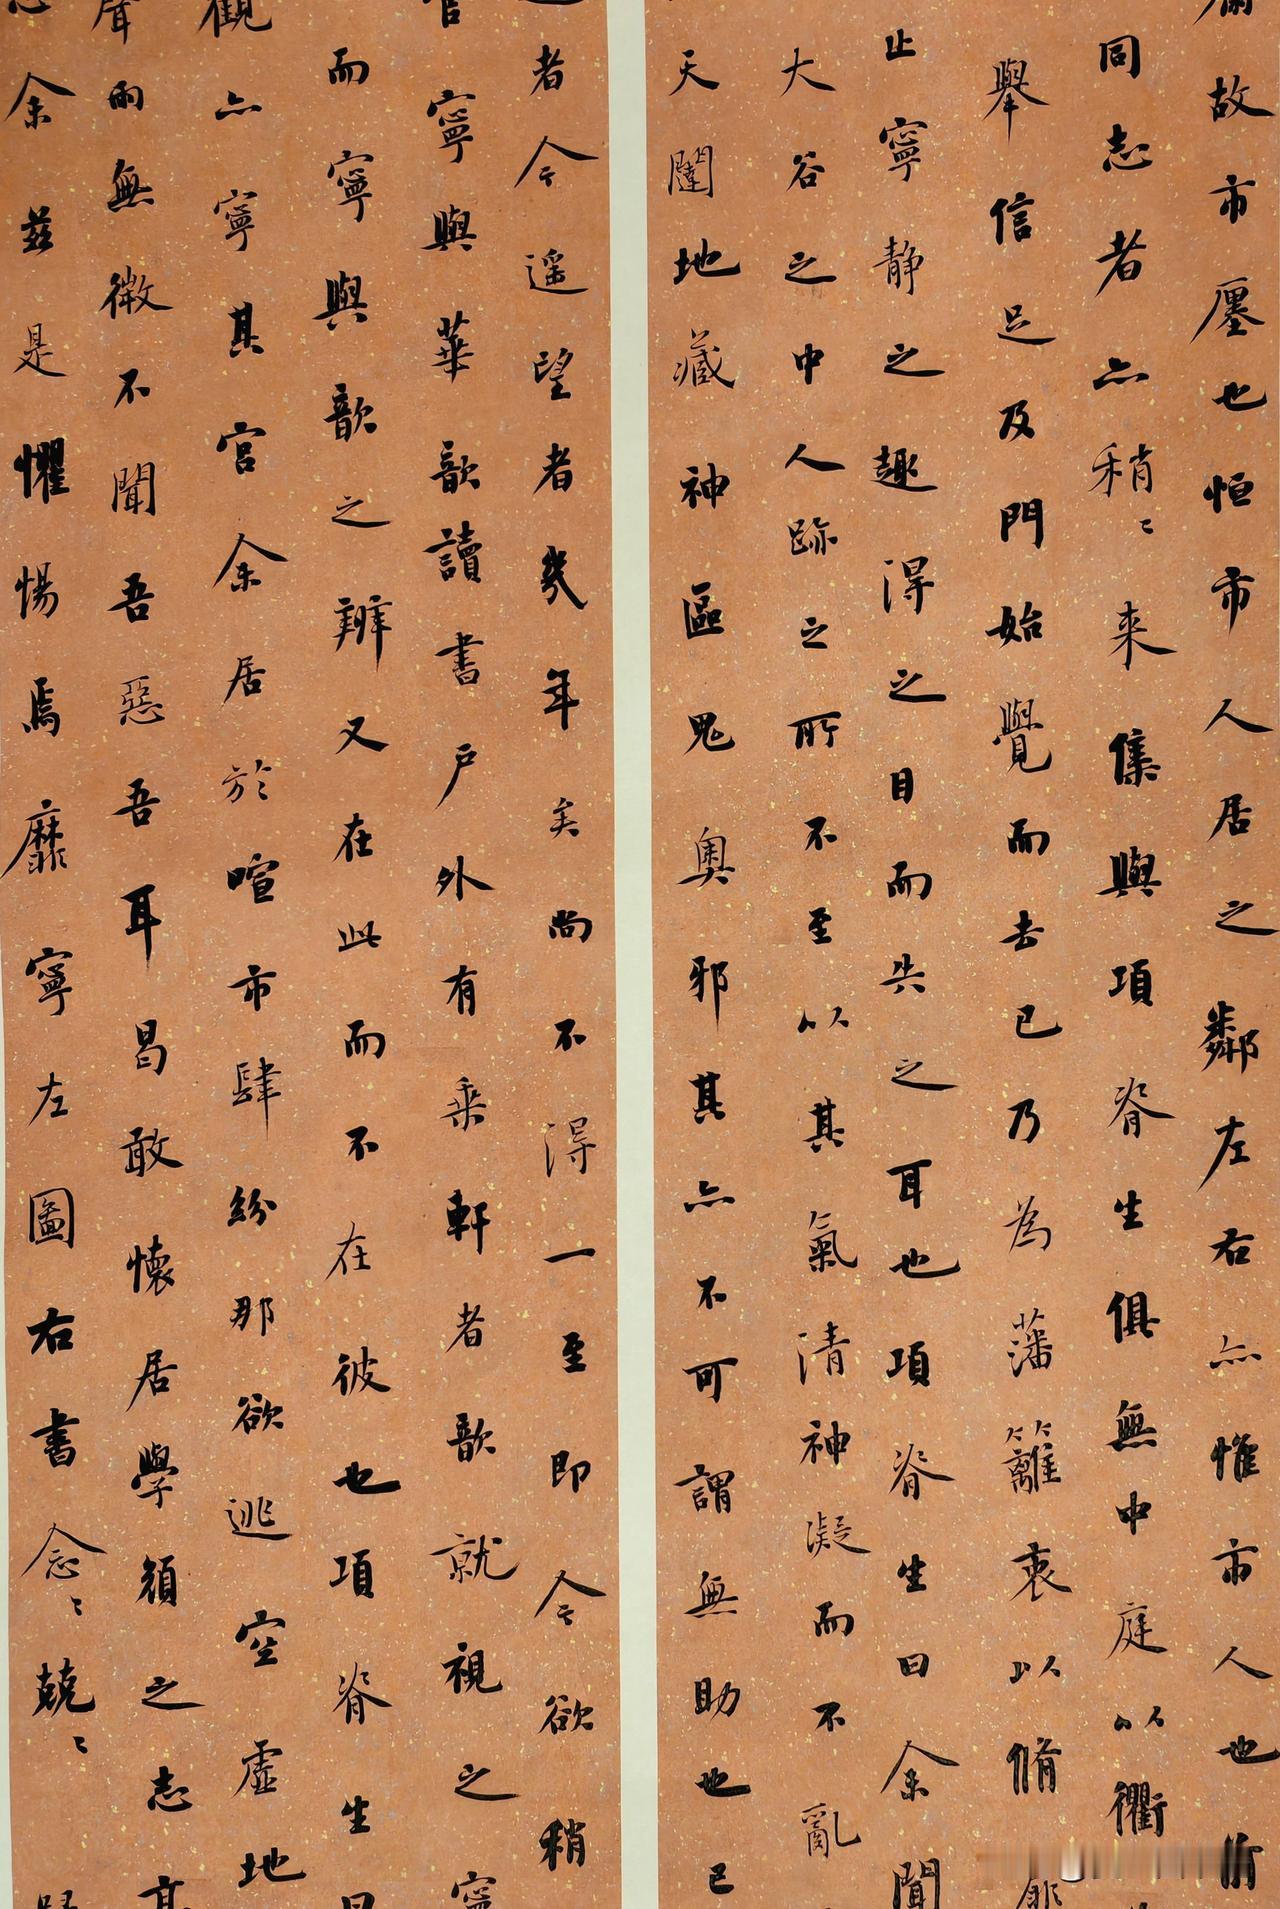 故市廛也恒市人居之鄰左右亦惟市人也前
同志者亦稍〻来集與項脊生俱無中庭以衢
舉信足及門始覺而去已乃為藩籬衷以脩
止寧静之趣得之目而失之耳也項脊生曰余聞
大谷之中人跡之所不至以其氣清神凝而不亂
天閟地藏神區鬼奥邪其亦不可謂無助也已
者今遥望者幾年矣尚不得一至即今欲稍
寧與華歆讀書户外有乘軒者歆就視之寧
而寧與歆之辨又在此而不在彼也項脊生曰
觀亦寧其宫余居於喧市肆紛那欲逃空虚地
聲而無微不聞吾惡吾耳曷敢懷居學顔之志
余兹是懼惕焉靡寧左圖右書念〻兢〻